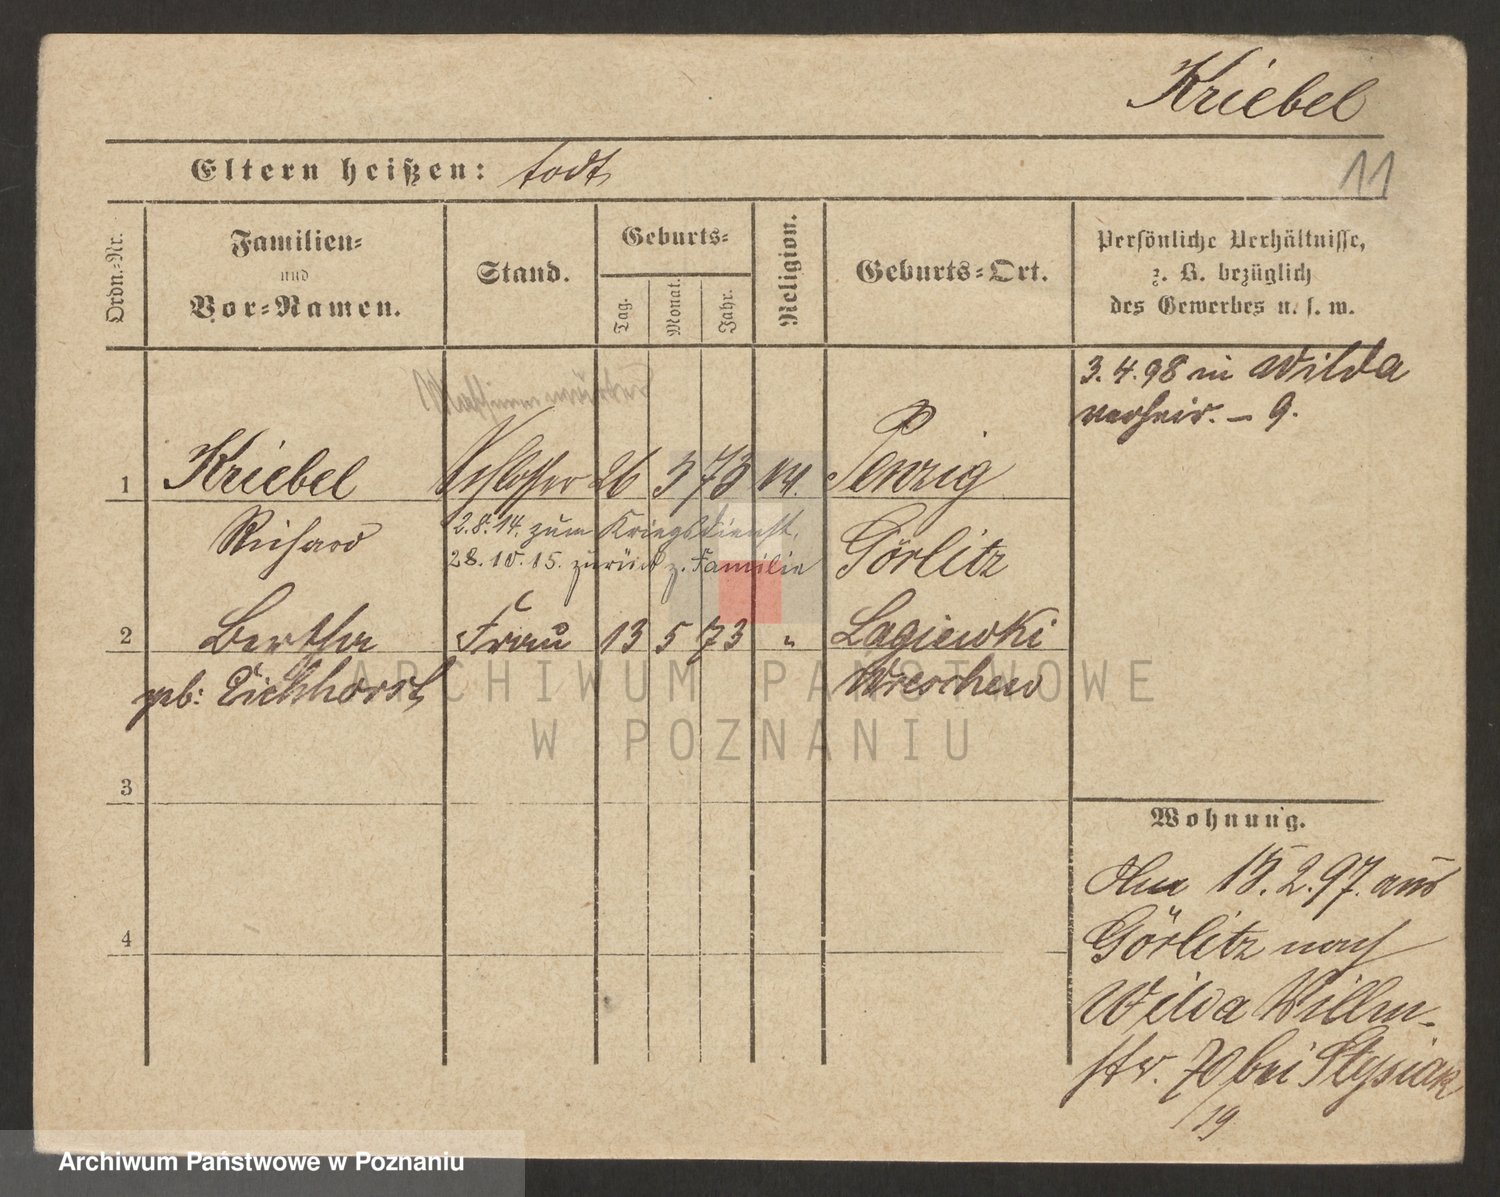 Kriebel
11
Eltern heißen: todt
Ordn.-Nr.
Familien-
und
Vor-Namen.
Stand.
Geburts-
Tag.
Monat.
Jahr.
Religion.
Geburts-Ort.
Persönliche Verhältnisse,
z. B. bezüglich
des Gewerbes u. s. w.
3.4.98 in Wilda
verheir. – 9.
1 Kriebel Schlosser 26 3 73 Penzig
Richard 2.8.14. zum Kriegsdienst, Görlitz
28.10.15. zurück z. Familie
2 Bertha Frau 13 5 73 " Lagiewki
geb: Eickhorst Wreschen
3
4
Wohnung.
15.2.97. aus
Görlitz nach
Wilda Billm-
str. 70 bei Stysiak
/19
ARCHIWUM PAŃSTWOWE
W POZNANIU
Archiwum Państwowe w Poznaniu